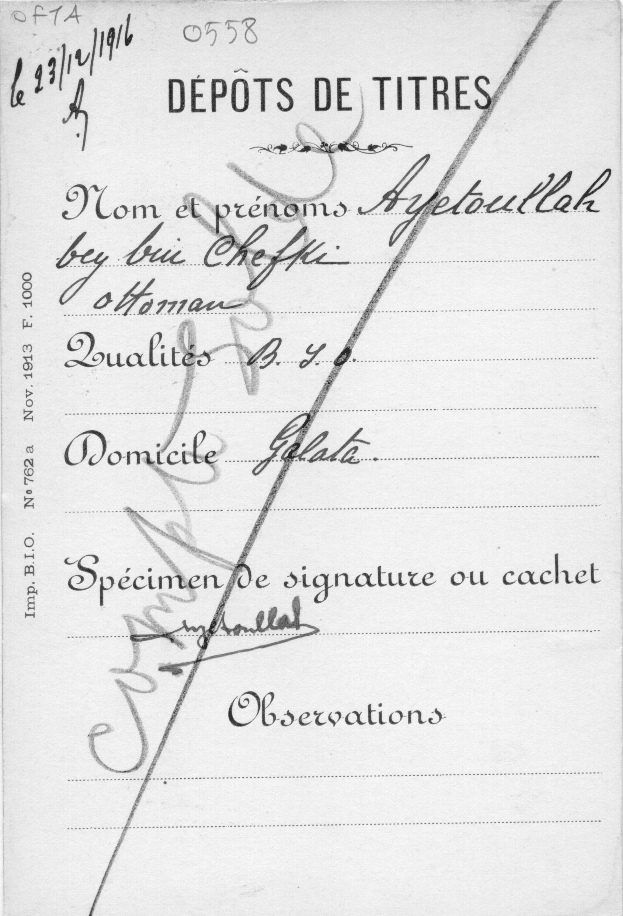 OFTA
0558
le 23/12/1916
DÉPÔTS DE TITRES
Nom et prénoms Ayetoullah
bey bin Chefki
ottoman
Qualités B. I. O.
Domicile Galata.
Spécimen de signature ou cachet
Ayetoullah
Observations
Compte soldé
Imp. B.I.O. Nº 762a Nov. 1913 F. 1000